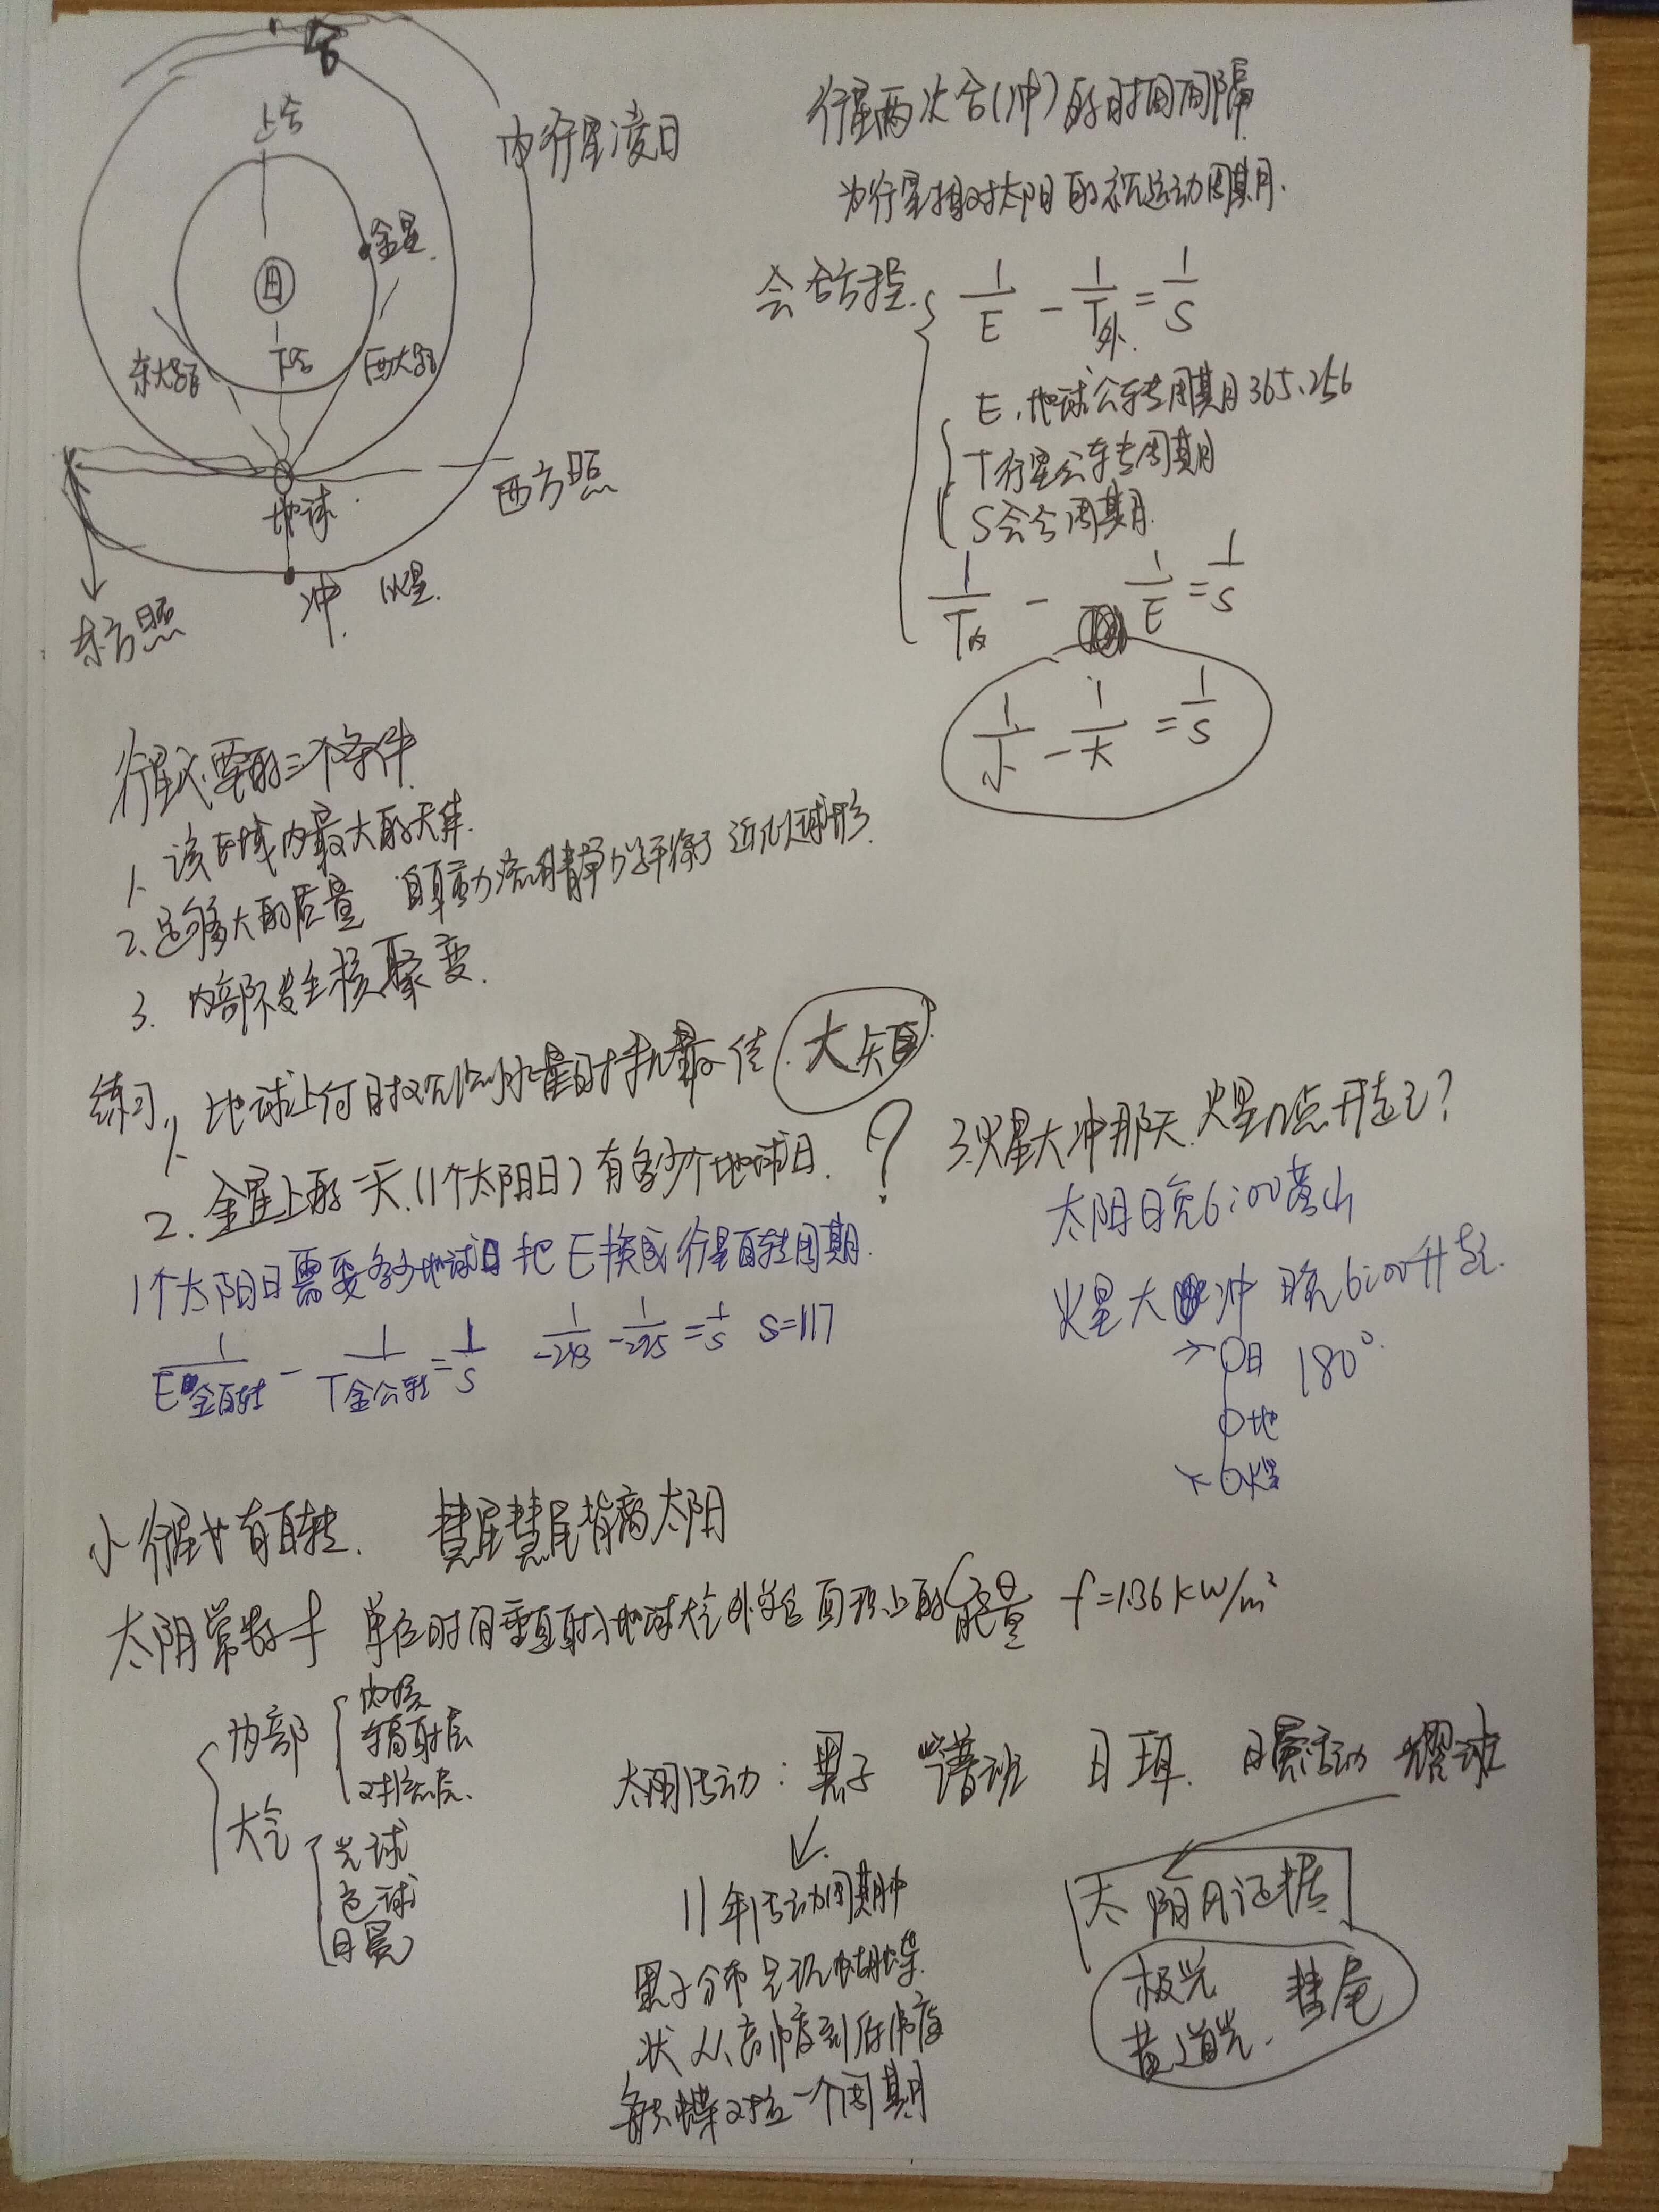 合
上合
内行星凌日
金星
日
东大距
下合
西大距
地球
西方照
冲 火星
东方照
行星两次合(冲)的时间间隔
为行星相对太阳的视运动周期.
会合方程.
1/E - 1/T外 = 1/S
E.地球公转周期365.256
T行星公转周期
S会合周期
1/T内 - 1/E = 1/S
1/小 - 1/大 = 1/S
行星必要的三个条件
1. 该区域内最大的天体.
2.足够大的质量 自身重力 流体静力学平衡 近似球形.
3. 内部不发生核聚变.
练习
1. 地球上何时观测水星时机最佳. 大距
2. 金星上的一天(1个太阳日)有多少个地球日. ?
1个太阳日需要多少地球日 把E换成行星自转周期.
1/E金自转 - 1/T金公转 = 1/S 1/-243 - 1/-225 = 1/S S=117
3.火星大冲那天.火星几点升起?
太阳日晚6:00落山
火星大冲 晚6:00升起.
日 180°
地
火星
小行星也有自转. 彗星彗尾背离太阳
太阳常数f 单位时间垂直射入地球大气外单位面积上的能量 f=1.36KW/m²
内部
内核
辐射层
对流层.
大气
光球
色球
日冕
太阳活动: 黑子 谱斑 日珥. 日冕活动 耀斑
11年活动周期中
黑子分布呈现蝴蝶
状 从高纬度到低纬度
每只蝶对应一个周期
太阳风证据
极光 彗尾
黄道光.